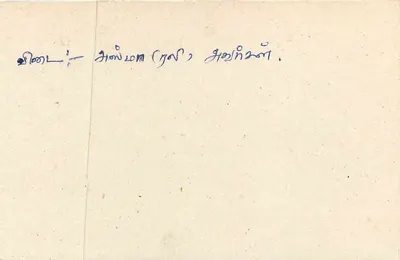 விடை :- அஸ்மா (ரலி) அவர்கள்.